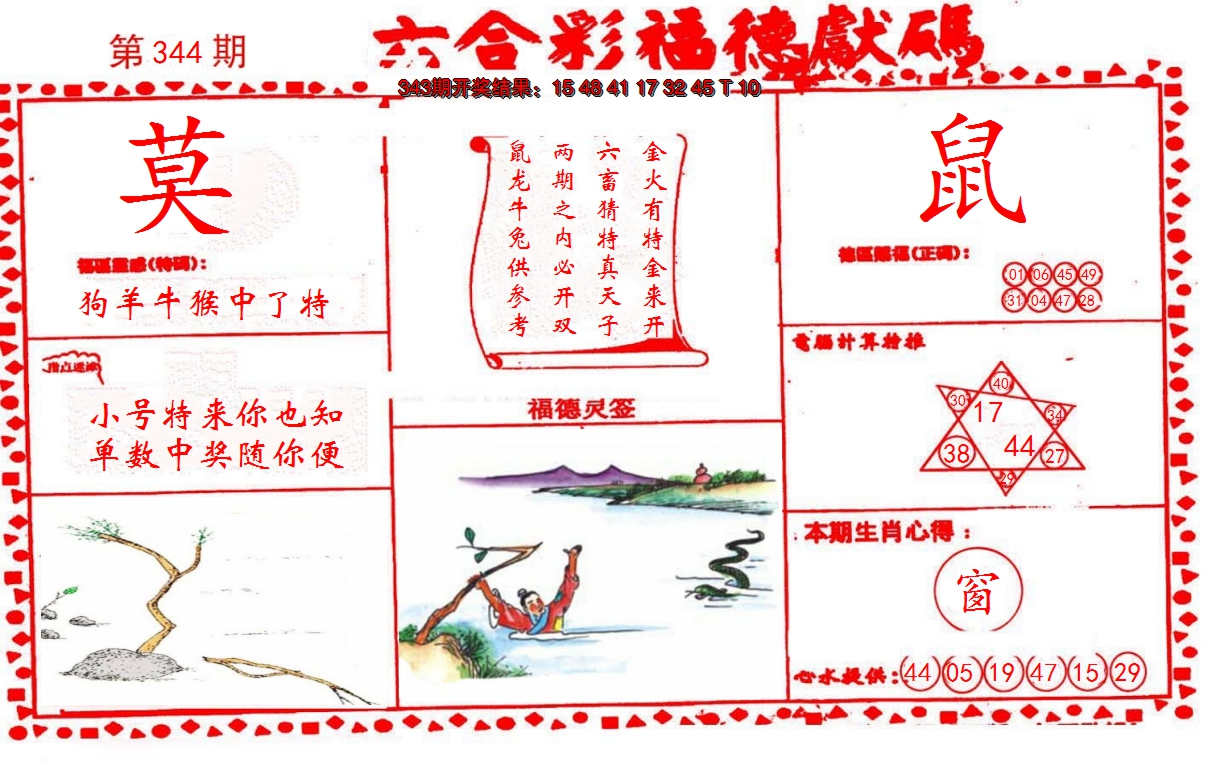 第 344 期
六合彩福德獻碼
343期开奖结果：15 48 41 17 32 45 T 10
莫
福區靈感(特碼)：
狗羊牛猴中了特
指点迷津
小号特来你也知
单数中奖随你便
金火有特金来开
六畜猜特真天子
两期之内必开双
鼠龙牛兔供参考
福德灵签
鼠
德區賜福(正碼)：
01 06 45 49
31 04 47 28
電腦計算特推
40
30 17 34
38 44 27
29
本期生肖心得：
窗
心水提供：44 05 19 47 15 29